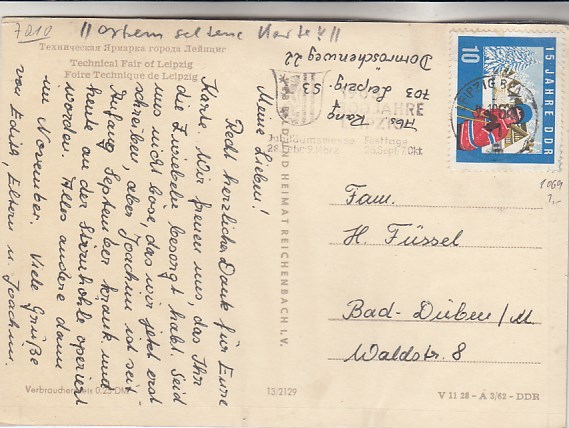 7010
!! extrem seltene Karte !!
Техническая Ярмарка города Лейпциг
Technical Fair of Leipzig
Foire Technique de Leipzig
Meine Lieben!
Recht herzliche Dank für Eure
Karte. Wir freuen uns, das Ihr
die Zwiebeln besorgt habt. Seid
uns nicht böse, das wir jetzt erst
schreiben, aber Joachim ist seit
Anfang September krank und
heute an der Stirnhöhle operiert
worden. Alles andere dann
im November. Viele Grüße
von Edith, Eltern u. Joachim.
Abs.
Kang
703 Leipzig S3
Dornröschenweg 22
800 JAHRE
Jubiläumsmesse Festtage
15 JAHRE DDR
10
1069
1,-
BILD UND HEIMAT REICHENBACH I.V.
Fam.
H. Füssel
Bad-Düben/M
Waldstr. 8
Verbraucherpreis 0.25 DM
13/2129
V 11 28 - A 3/62 - DDR